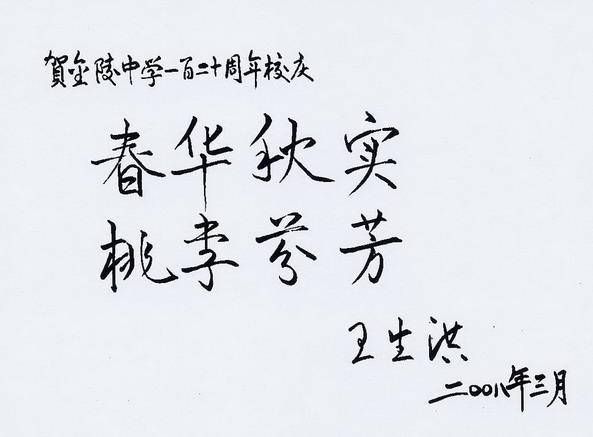 賀金陵中学一百二十周年校庆
春华秋实
桃李芬芳
王生洪
二〇〇八年三月